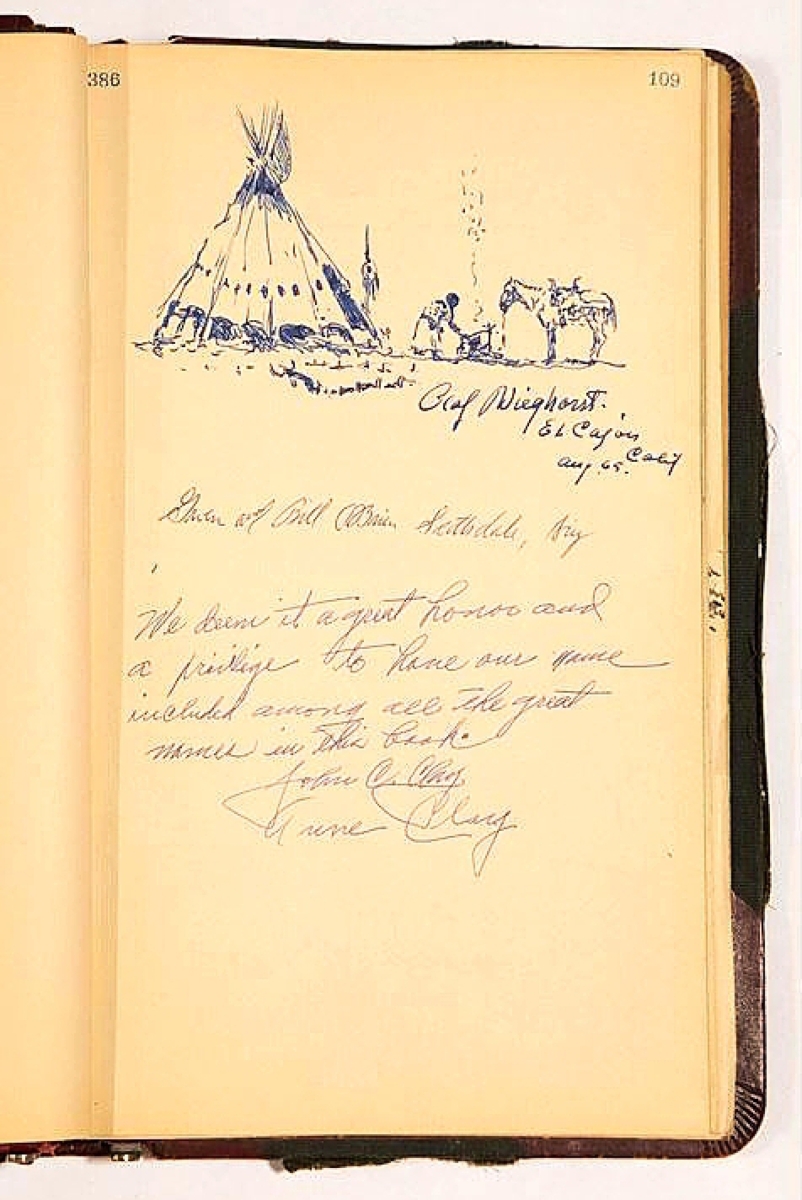 386
109
Olaf Wieghorst.
El Cajon
Calif
Aug. 69.
Gwen and Bill O'Brien Scottsdale, Ariz
We deem it a great honor and
a privilige to have our name
included among all the great
names in this book.
John C. Clay
Clay